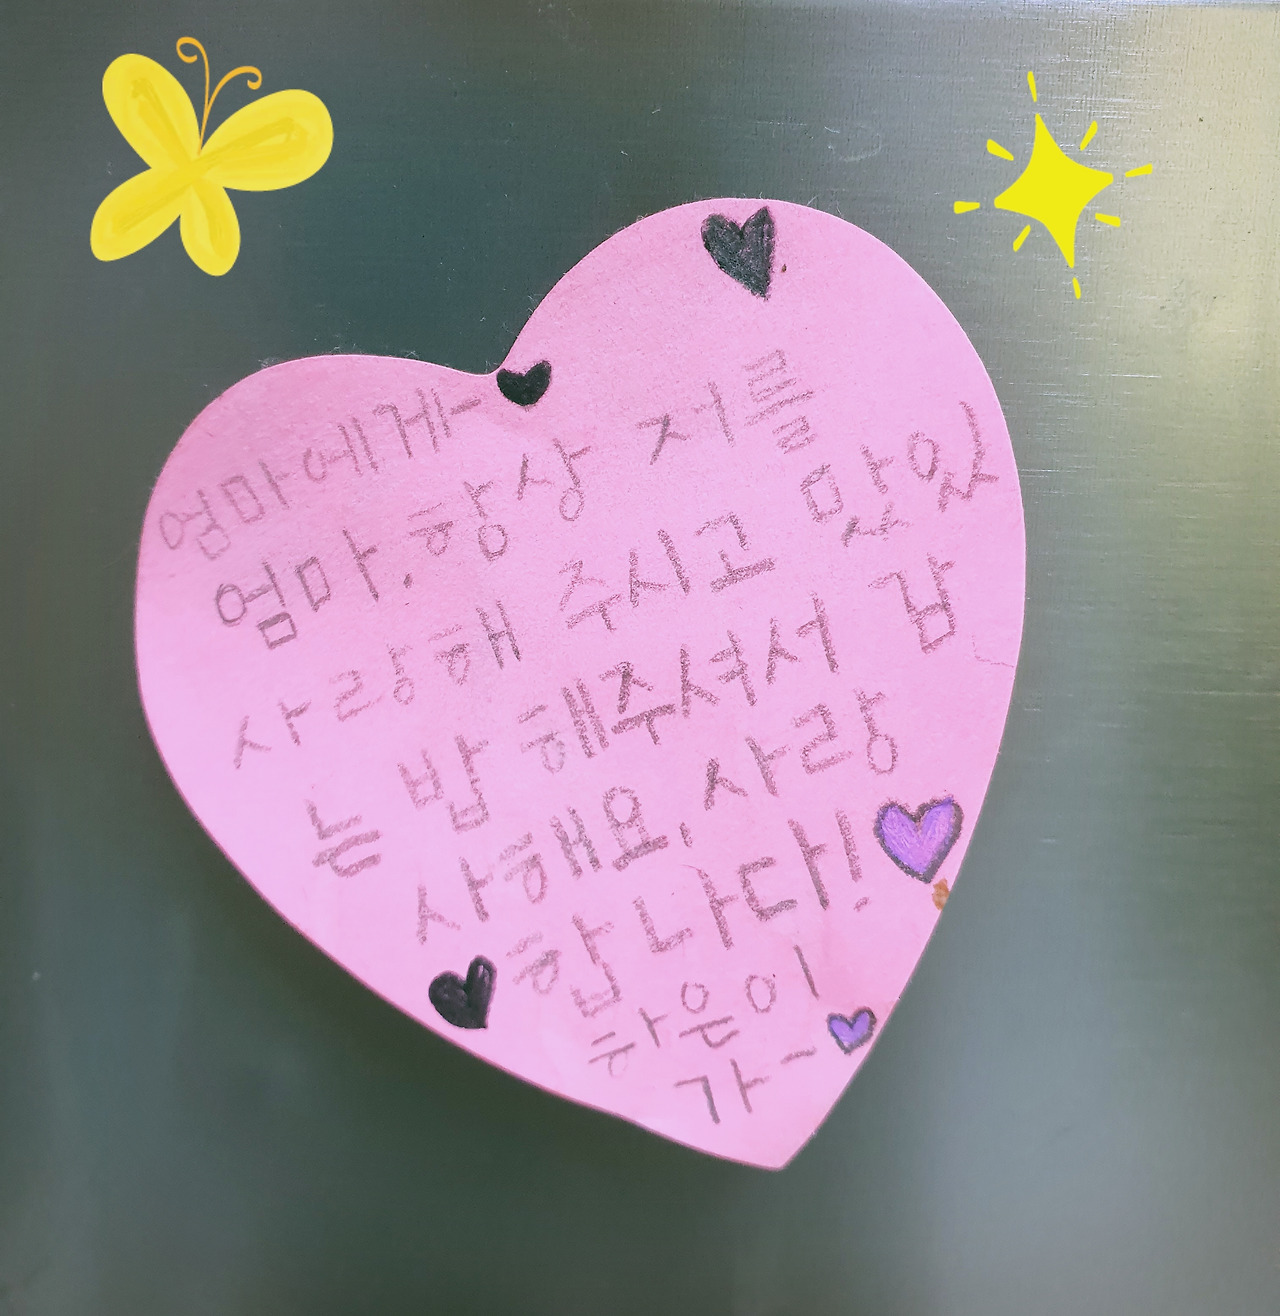 엄마에게-
엄마. 항상 저를
사랑해 주시고 맛있
는 밥 해주셔서 감
사해요. 사랑
합니다!
하은이
가-